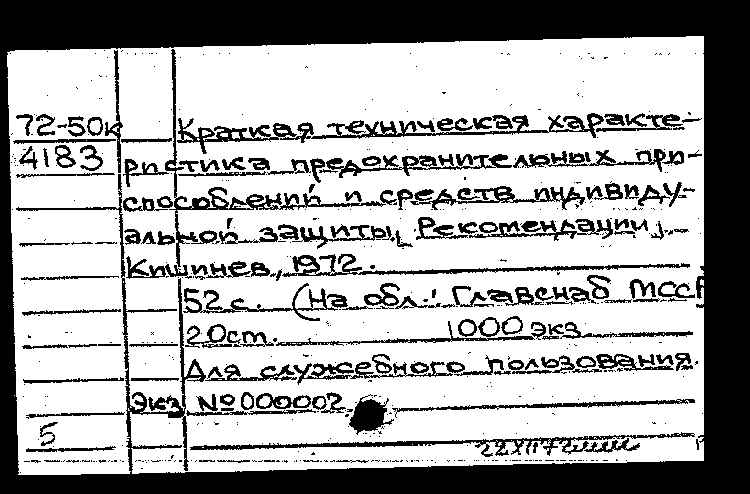 72-50к Краткая техническая характе-
4183 ристика предохранительных при-
способлений и средств индивиду-
альной защиты, Рекомендации,
Кишинев, 1972.
52 с. (На обл.: Главснаб МССР
20ст. 1000 экз
Для служебного пользования.
Экз №000002
5